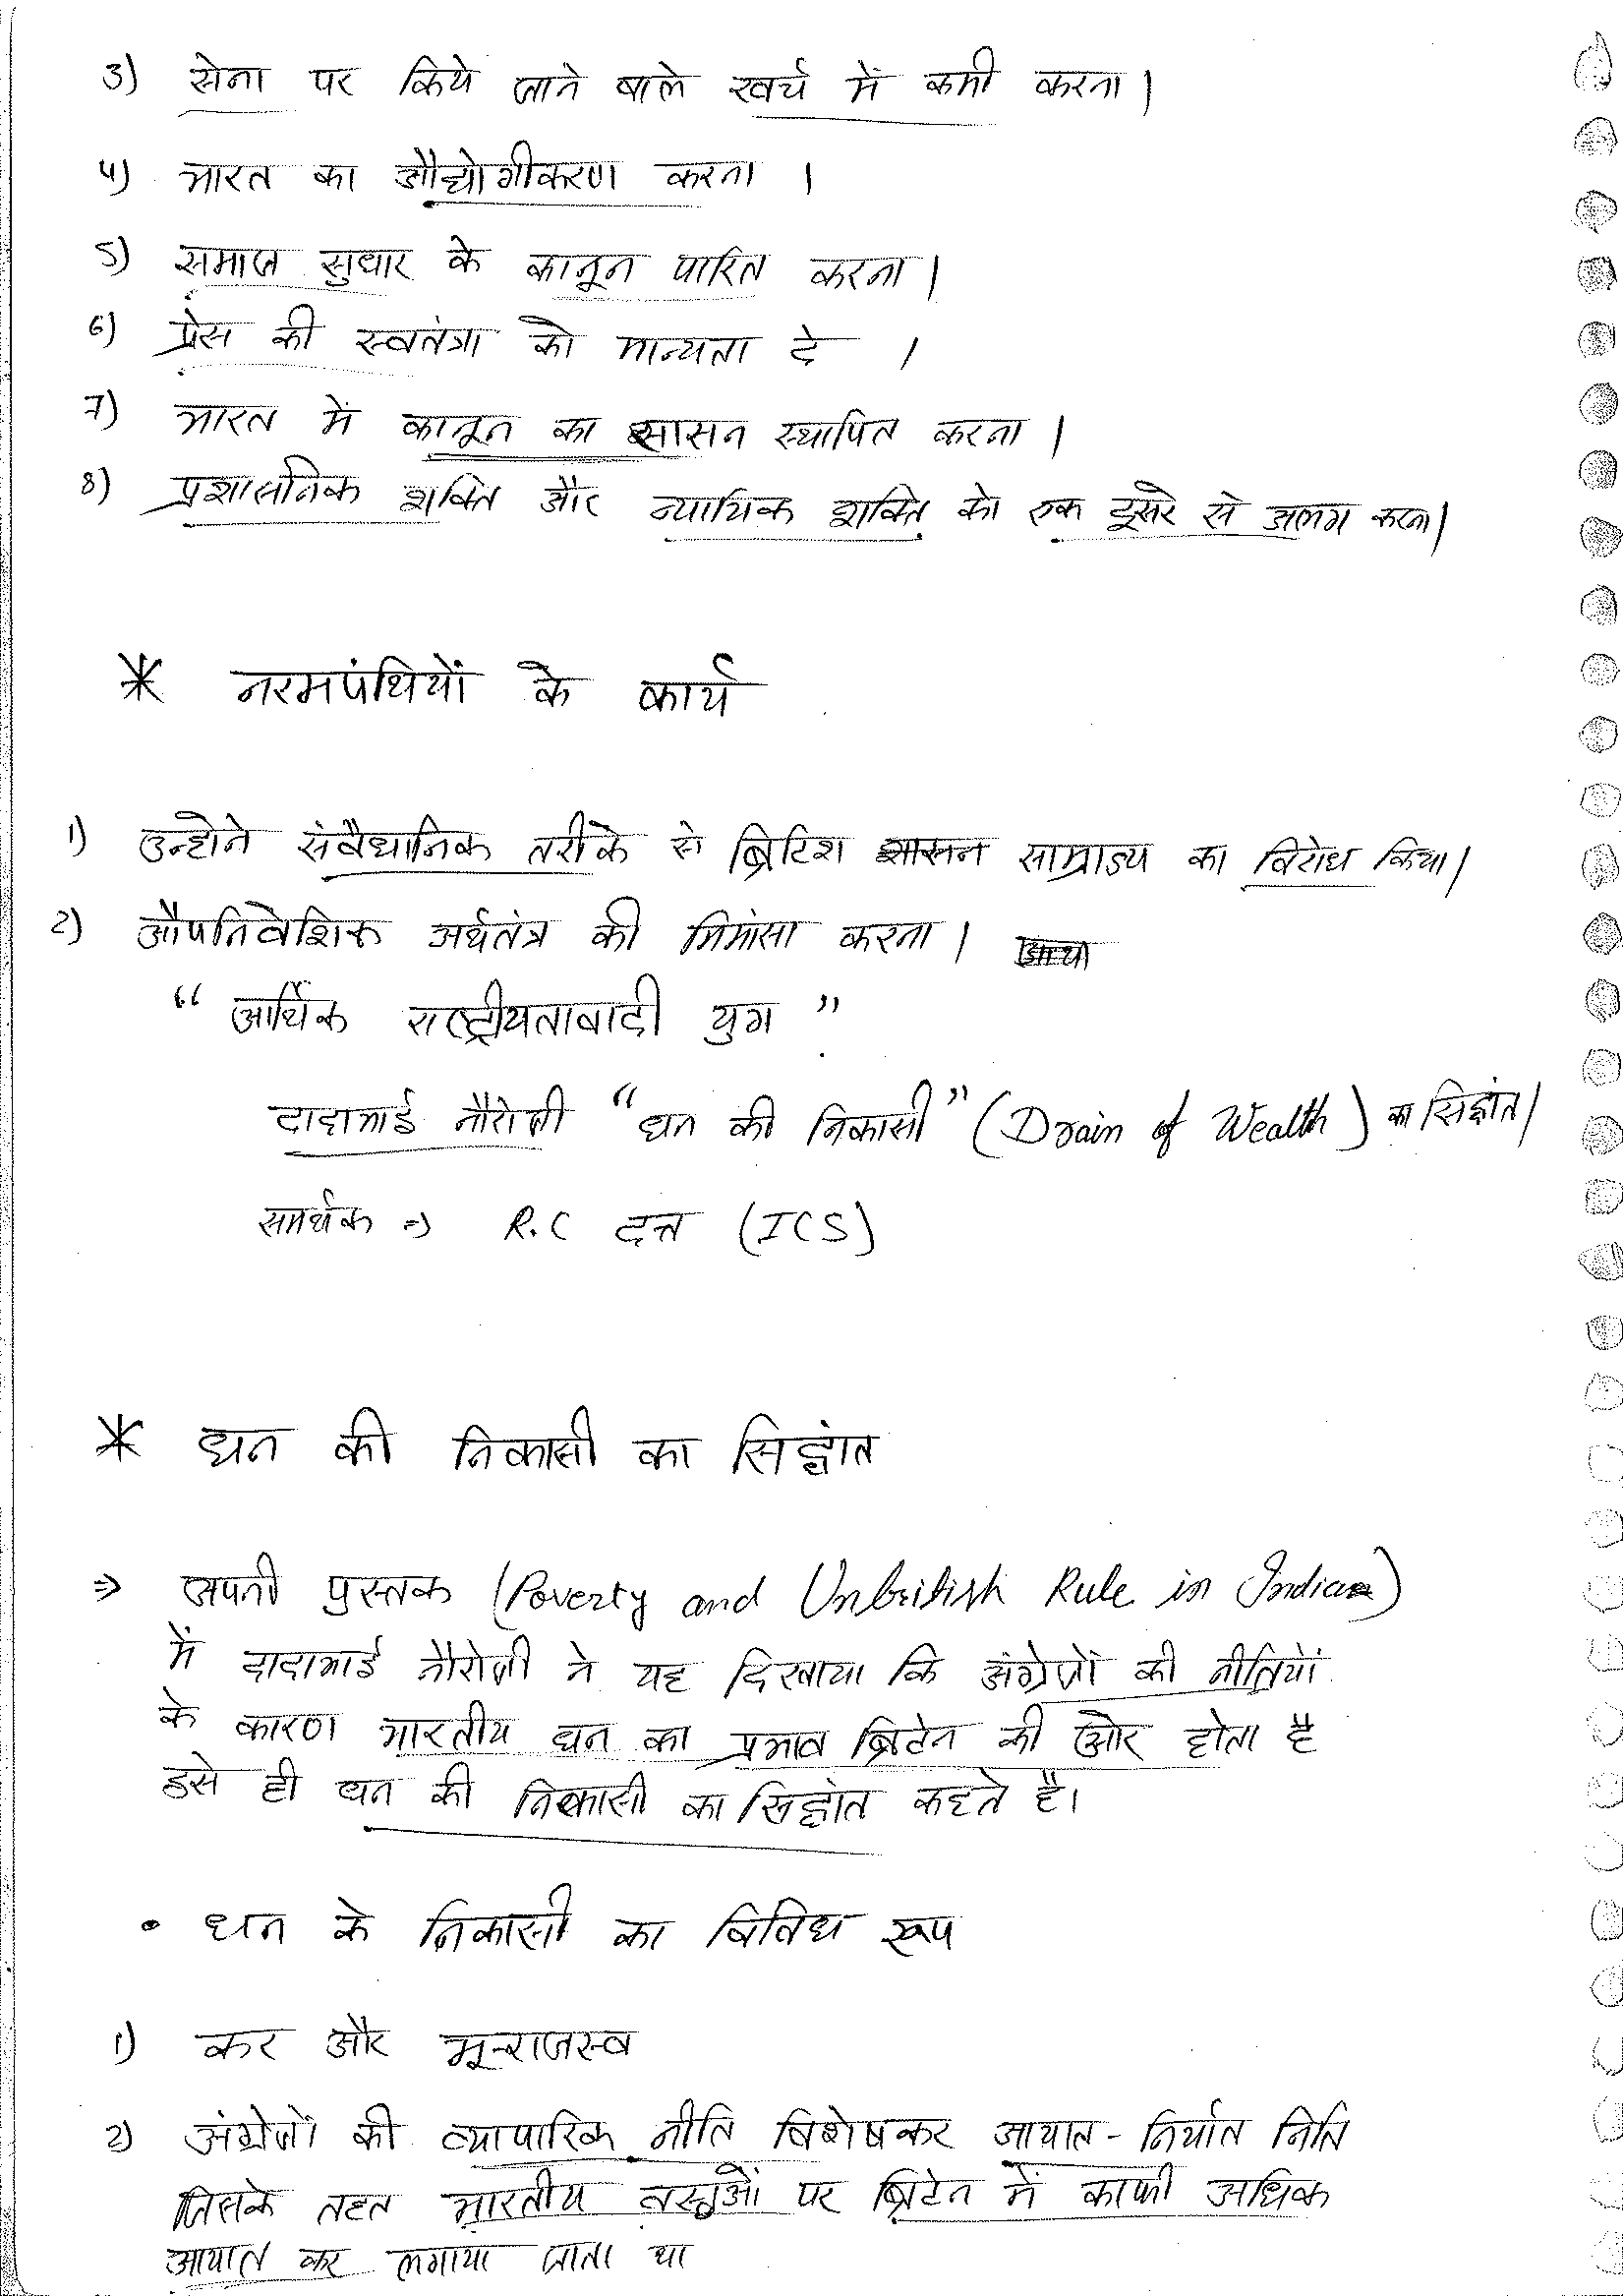 3) सेना पर किये जाने बाले खर्च में कमी करना।
4) भारत का औद्योगीकरण करना ।
5) समाज सुधार के कानून पारित करना।
6) प्रेस की स्वतंत्रा को मान्यता दे ।
7) भारत में कानून का सासन स्थापित करना।
8) प्रशासनिक शक्ति और न्यायिक शक्ति को एक दूसरे से अलग करना।
* नरमपंथियों के कार्य
1) उन्होने संवैधानिक तरीके से ब्रिटिश शासन साम्राज्य का विरोध किया।
2) औपनिवेशिक अर्थतंत्र की मिमांसा करना।
“ आर्थिक राष्ट्रीयतावादी युग ”
दादाभाई नौरोजी “धन की निकासी” (Drain of Wealth) का सिद्धांत।
समर्थक ⇒ R.C दत्त (ICS)
* धन की निकासी का सिद्धांत
⇒ अपनी पुस्तक (Poverty and Unbritish Rule in India)
में दादाभाई नौरोजी ने यह दिखाया कि अंग्रेजों की नीतियों
के कारण भारतीय धन का प्रभाव ब्रिटेन की ओर होता है
इसे ही धन की निकासी का सिद्धांत कहते है।
• धन के निकासी का विविध रूप
1) कर और भू-राजस्व
2) अंग्रेजों की व्यापारिक नीति विशेषकर आयात - निर्यात निति
जिसके तहत भारतीय वस्तुओं पर ब्रिटेन में काफी अधिक
आयात कर लगाया जाता था